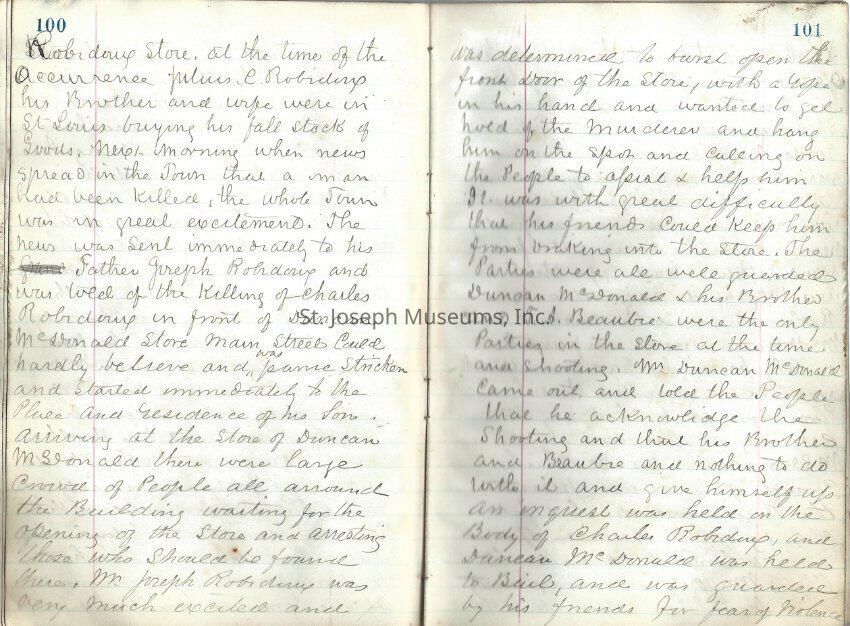 100
Robidoux Store. at the time of the
Accurrence Julius C Robidoux
his Brother and wife were in
St Louis buying his fall stock of
Goods. Next morning when news
spread in the Town that a man
had been Killed, the whole Town
was in great excitement. The
news was sent immediately to his
Father Joseph Robidoux and
was told of the Killing of Charles
Robidoux in front of Duncan
McDonald Store Main Street Could
hardly believe and was panic Stricken
and started immediately to the
Place and residence of his Son.
arriving at the Store of Duncan
McDonald there were large
Crowd of People all arround
the Building waiting for the
opening of the Store and arresting
those who should be found
there. Mr Joseph Robidoux was
very much excited and
101
was determined to burst open the
front door of the Store, with a rope
in his hand and wanted to get
hold of the Murderer and hang
him on the spot and calling on
the People to assist & help him
It was with great difficulty
that his friends could keep him
from braking into the Store. The
Parties were all well guarded
Duncan McDonald & his Brother
J. Beaubie were the only
Parties in the Store at the time
and shooting. Mr Duncan McDonald
came out and told the People
that he acknowlidge the
Shooting and that his Brother
and Beaubie and nothing to do
with it and give himself up
an inquest was held on the
Body of Charles Robidoux, and
Duncan McDonald was held
to Bail, and was guarded
by his friends for fear of Violence
St. Joseph Museums, Inc.